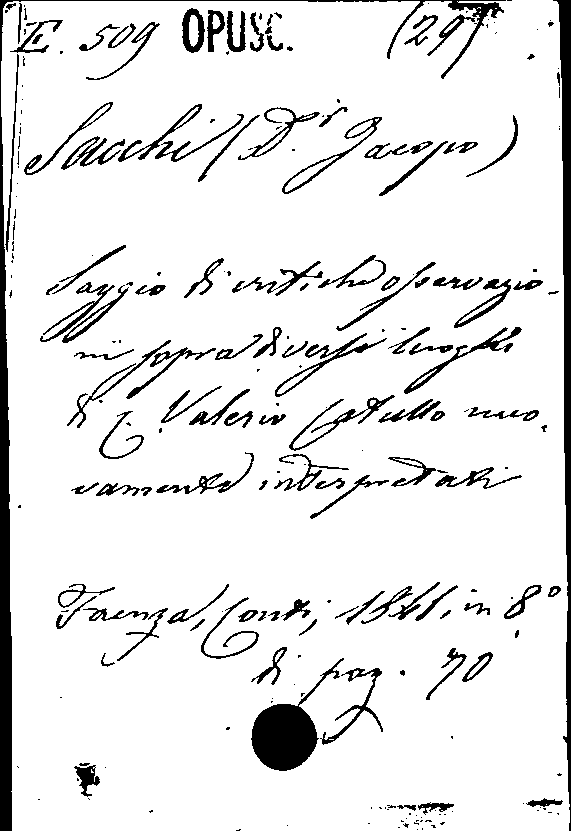 E. 509 OPUSC. (29)
Sacchi (D.r Jacopo)
Saggio di critiche osservazio-
ni sopra diversi luoghi
di C. Valerio Catullo nuo-
vamente interpretati
Faenza, Conti, in 8°
di pag. 70